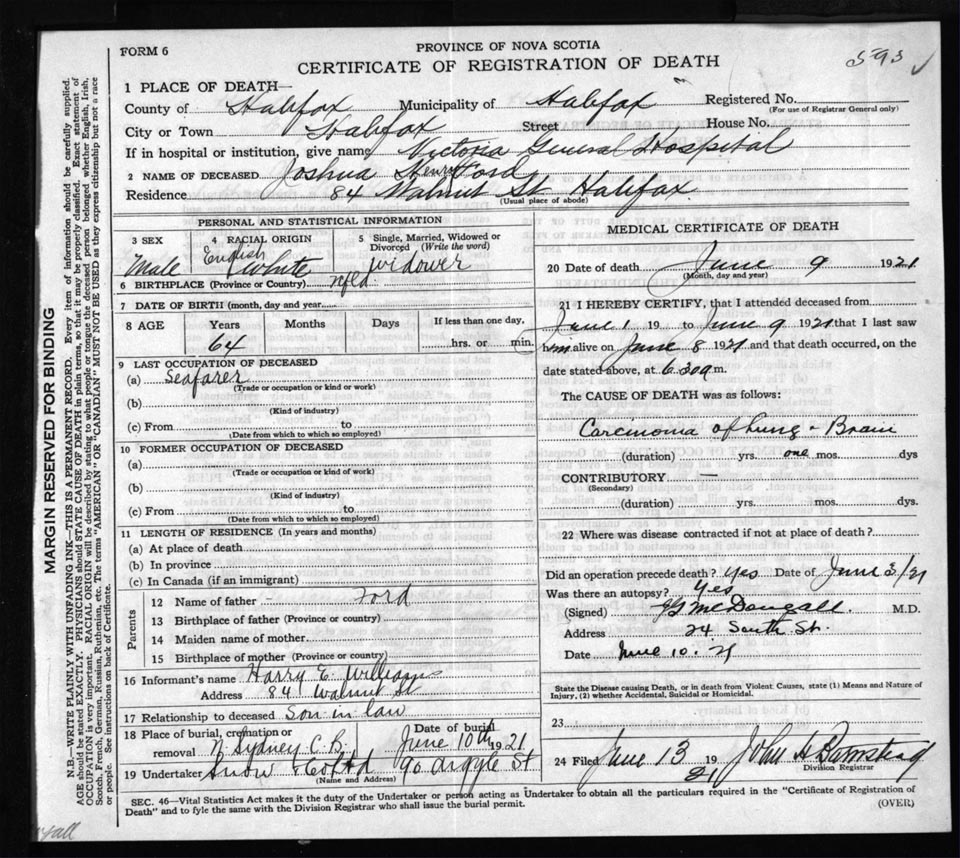 FORM 6
PROVINCE OF NOVA SCOTIA
CERTIFICATE OF REGISTRATION OF DEATH
593 ✓
1 PLACE OF DEATH—
County of Halifax Municipality of Halifax Registered No.
(For use of Registrar General only)
City or Town Halifax Street House No.
If in hospital or institution, give name Victoria General Hospital
2 NAME OF DECEASED Joshua Henry Ford
Residence 84 Walnut St Halifax
(Usual place of abode)
PERSONAL AND STATISTICAL INFORMATION
3 SEX 4 RACIAL ORIGIN 5 Single, Married, Widowed or Divorced (Write the word)
Male English (White widower
6 BIRTHPLACE (Province or Country) nfld
7 DATE OF BIRTH (month, day and year
8 AGE Years Months Days If less than one day,
64 hrs. or min.
9 LAST OCCUPATION OF DECEASED
(a) Seafarer
(Trade or occupation or kind or work)
(b)
(Kind of industry)
(c) From to
(Date from which to which so employed)
10 FORMER OCCUPATION OF DECEASED
(a)
(Trade or occupation or kind of work)
(b)
(Kind of industry)
(c) From to
(Date from which to which so employed)
11 LENGTH OF RESIDENCE (In years and months)
(a) At place of death
(b) In province
(c) In Canada (if an immigrant)
Parents
12 Name of father - Ford
13 Birthplace of father (Province or country)
14 Maiden name of mother
15 Birthplace of mother (Province or country)
16 Informant's name Harry E. Williams
Address 84 Walnut St
17 Relationship to deceased Son in law
18 Place of burial, cremation or removal N Sydney C.B. Date of burial June 10th 1921
19 Undertaker Snow & Co Ltd 90 Argyle St
(Name and Address)
MEDICAL CERTIFICATE OF DEATH
20 Date of death June 9 1921
(Month, day and year)
21 I HEREBY CERTIFY, that I attended deceased from
June 1 19 to June 9 1921 that I last saw
him alive on June 8 1921 and that death occurred, on the
date stated above, at 6.30 a m.
The CAUSE OF DEATH was as follows:
Carcinoma of Lung & Brain
(duration) yrs. one mos. dys
CONTRIBUTORY
(Secondary)
(duration) yrs. mos. dys.
22 Where was disease contracted if not at place of death?
Did an operation precede death? yes Date of June 3/21
Was there an autopsy? Yes
(Signed) J G McDougall. M.D.
Address 24 South St.
Date June 10. 21
State the Disease causing Death, or in death from Violent Causes, state (1) Means and Nature of Injury, (2) whether Accidental, Suicidal or Homicidal.
23
24 Filed June 13 19 21 John H Barnstead
Division Registrar
SEC. 46—Vital Statistics Act makes it the duty of the Undertaker or person acting as Undertaker to obtain all the particulars required in the "Certificate of Registration of
Death" and to fyle the same with the Division Registrar who shall issue the burial permit.
(OVER)
MARGIN RESERVED FOR BINDING
N.B.—WRITE PLAINLY WITH UNFADING INK—THIS IS A PERMANENT RECORD. Every item of information should be carefully supplied.
AGE should be stated EXACTLY. PHYSICIANS should STATE CAUSE OF DEATH in plain terms, so that it may be properly classified. Exact statement of
OCCUPATION is very important. RACIAL ORIGIN will be described by stating to what people or tongue the deceased person belonged, whether English, Irish,
Scotch, French, German, Russian, Ruthenian, etc. The terms "AMERICAN" OR "CANADIAN" MUST NOT BE USED as they express citizenship but not a race
or people. See instructions on back of Certificate.